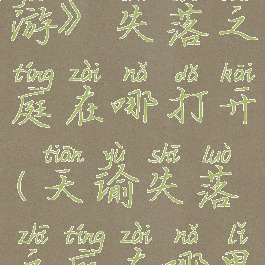 游》失落之
tíng zài nǎ dǎ kāi
庭在哪打开
tiān yù shī luò
(天谕失落
zhī tíng zài nǎ lǐ